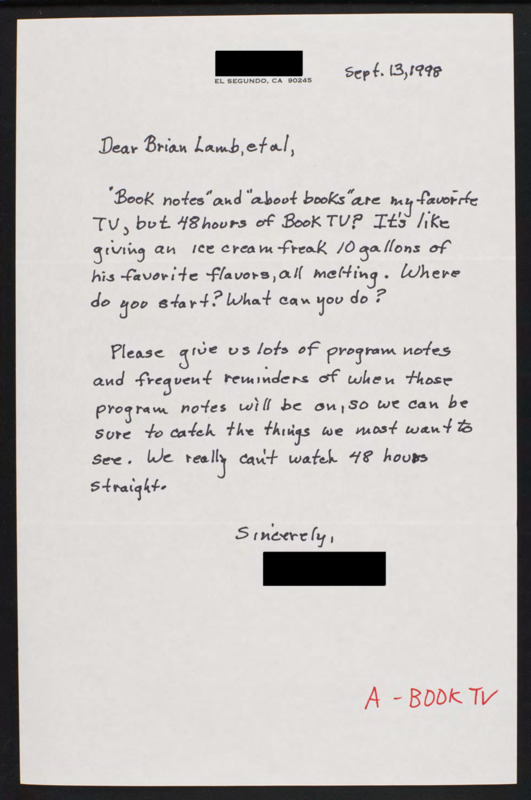 EL SEGUNDO, CA 90245
Sept. 13, 1998
Dear Brian Lamb, et al,
"Book notes" and "about books" are my favorite
TV, but 48 hours of Book TV? It's like
giving an ice cream freak 10 gallons of
his favorite flavors, all melting. Where
do you start? What can you do?
Please give us lots of program notes
and frequent reminders of when those
program notes will be on, so we can be
sure to catch the things we most want to
see. We really can't watch 48 hours
straight.
Sincerely,
A - BOOK TV